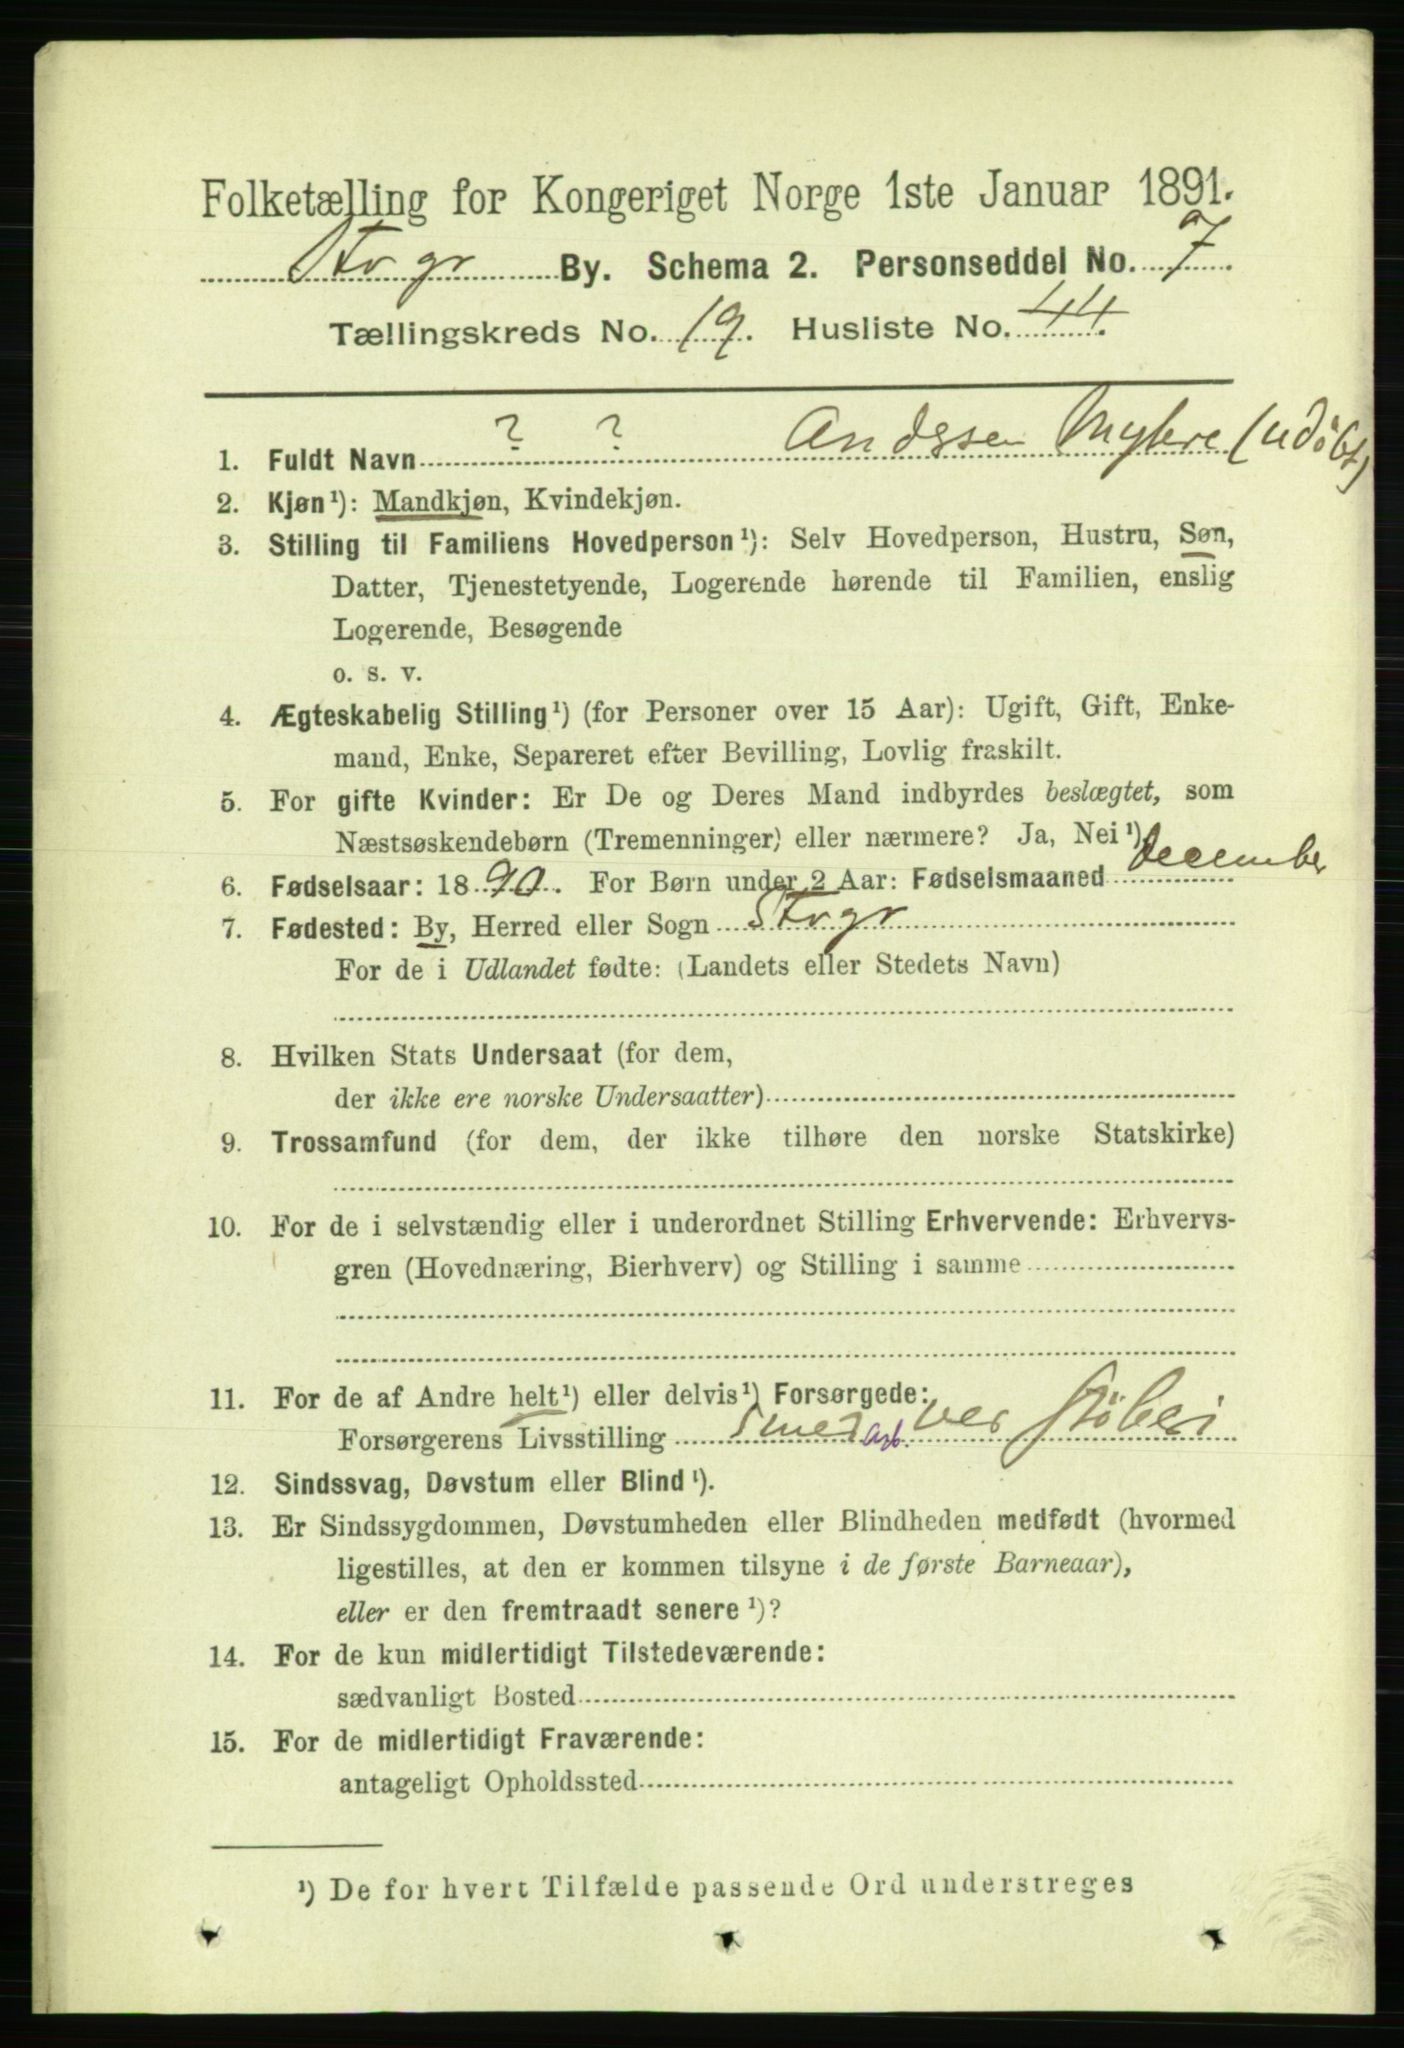 Folketælling for Kongeriget Norge 1ste Januar 1891.
Stvgr By. Schema 2. Personseddel No. 7
Tællingskreds No. 19. Husliste No. 44.
1. Fuldt Navn ? ? Andssen Myhre (udöbt)
2. Kjøn¹): Mandkjøn, Kvindekjøn.
3. Stilling til Familiens Hovedperson¹): Selv Hovedperson, Hustru, Søn,
Datter, Tjenestetyende, Logerende hørende til Familien, enslig
Logerende, Besøgende
o. s. v.
4. Ægteskabelig Stilling¹) (for Personer over 15 Aar): Ugift, Gift, Enke-
mand, Enke, Separeret efter Bevilling, Lovlig fraskilt.
5. For gifte Kvinder: Er De og Deres Mand indbyrdes beslægtet, som
Næstsøskendebørn (Tremenninger) eller nærmere? Ja, Nei¹)
6. Fødselsaar: 1890. For Børn under 2 Aar: Fødselsmaaned December
7. Fødested: By, Herred eller Sogn Stvgr
For de i Udlandet fødte: (Landets eller Stedets Navn)
8. Hvilken Stats Undersaat (for dem,
der ikke ere norske Undersaatter)
9. Trossamfund (for dem, der ikke tilhøre den norske Statskirke)
10. For de i selvstændig eller i underordnet Stilling Erhvervende: Erhvervs-
gren (Hovednæring, Bierhverv) og Stilling i samme
11. For de af Andre helt¹) eller delvis¹) Forsørgede:
Forsørgerens Livsstilling Smed arb. ved Støberi
12. Sindssvag, Døvstum eller Blind¹).
13. Er Sindssygdommen, Døvstumheden eller Blindheden medfødt (hvormed
ligestilles, at den er kommen tilsyne i de første Barneaar),
eller er den fremtraadt senere¹)?
14. For de kun midlertidigt Tilstedeværende:
sædvanligt Bosted
15. For de midlertidigt Fraværende:
antageligt Opholdssted
¹) De for hvert Tilfælde passende Ord understreges